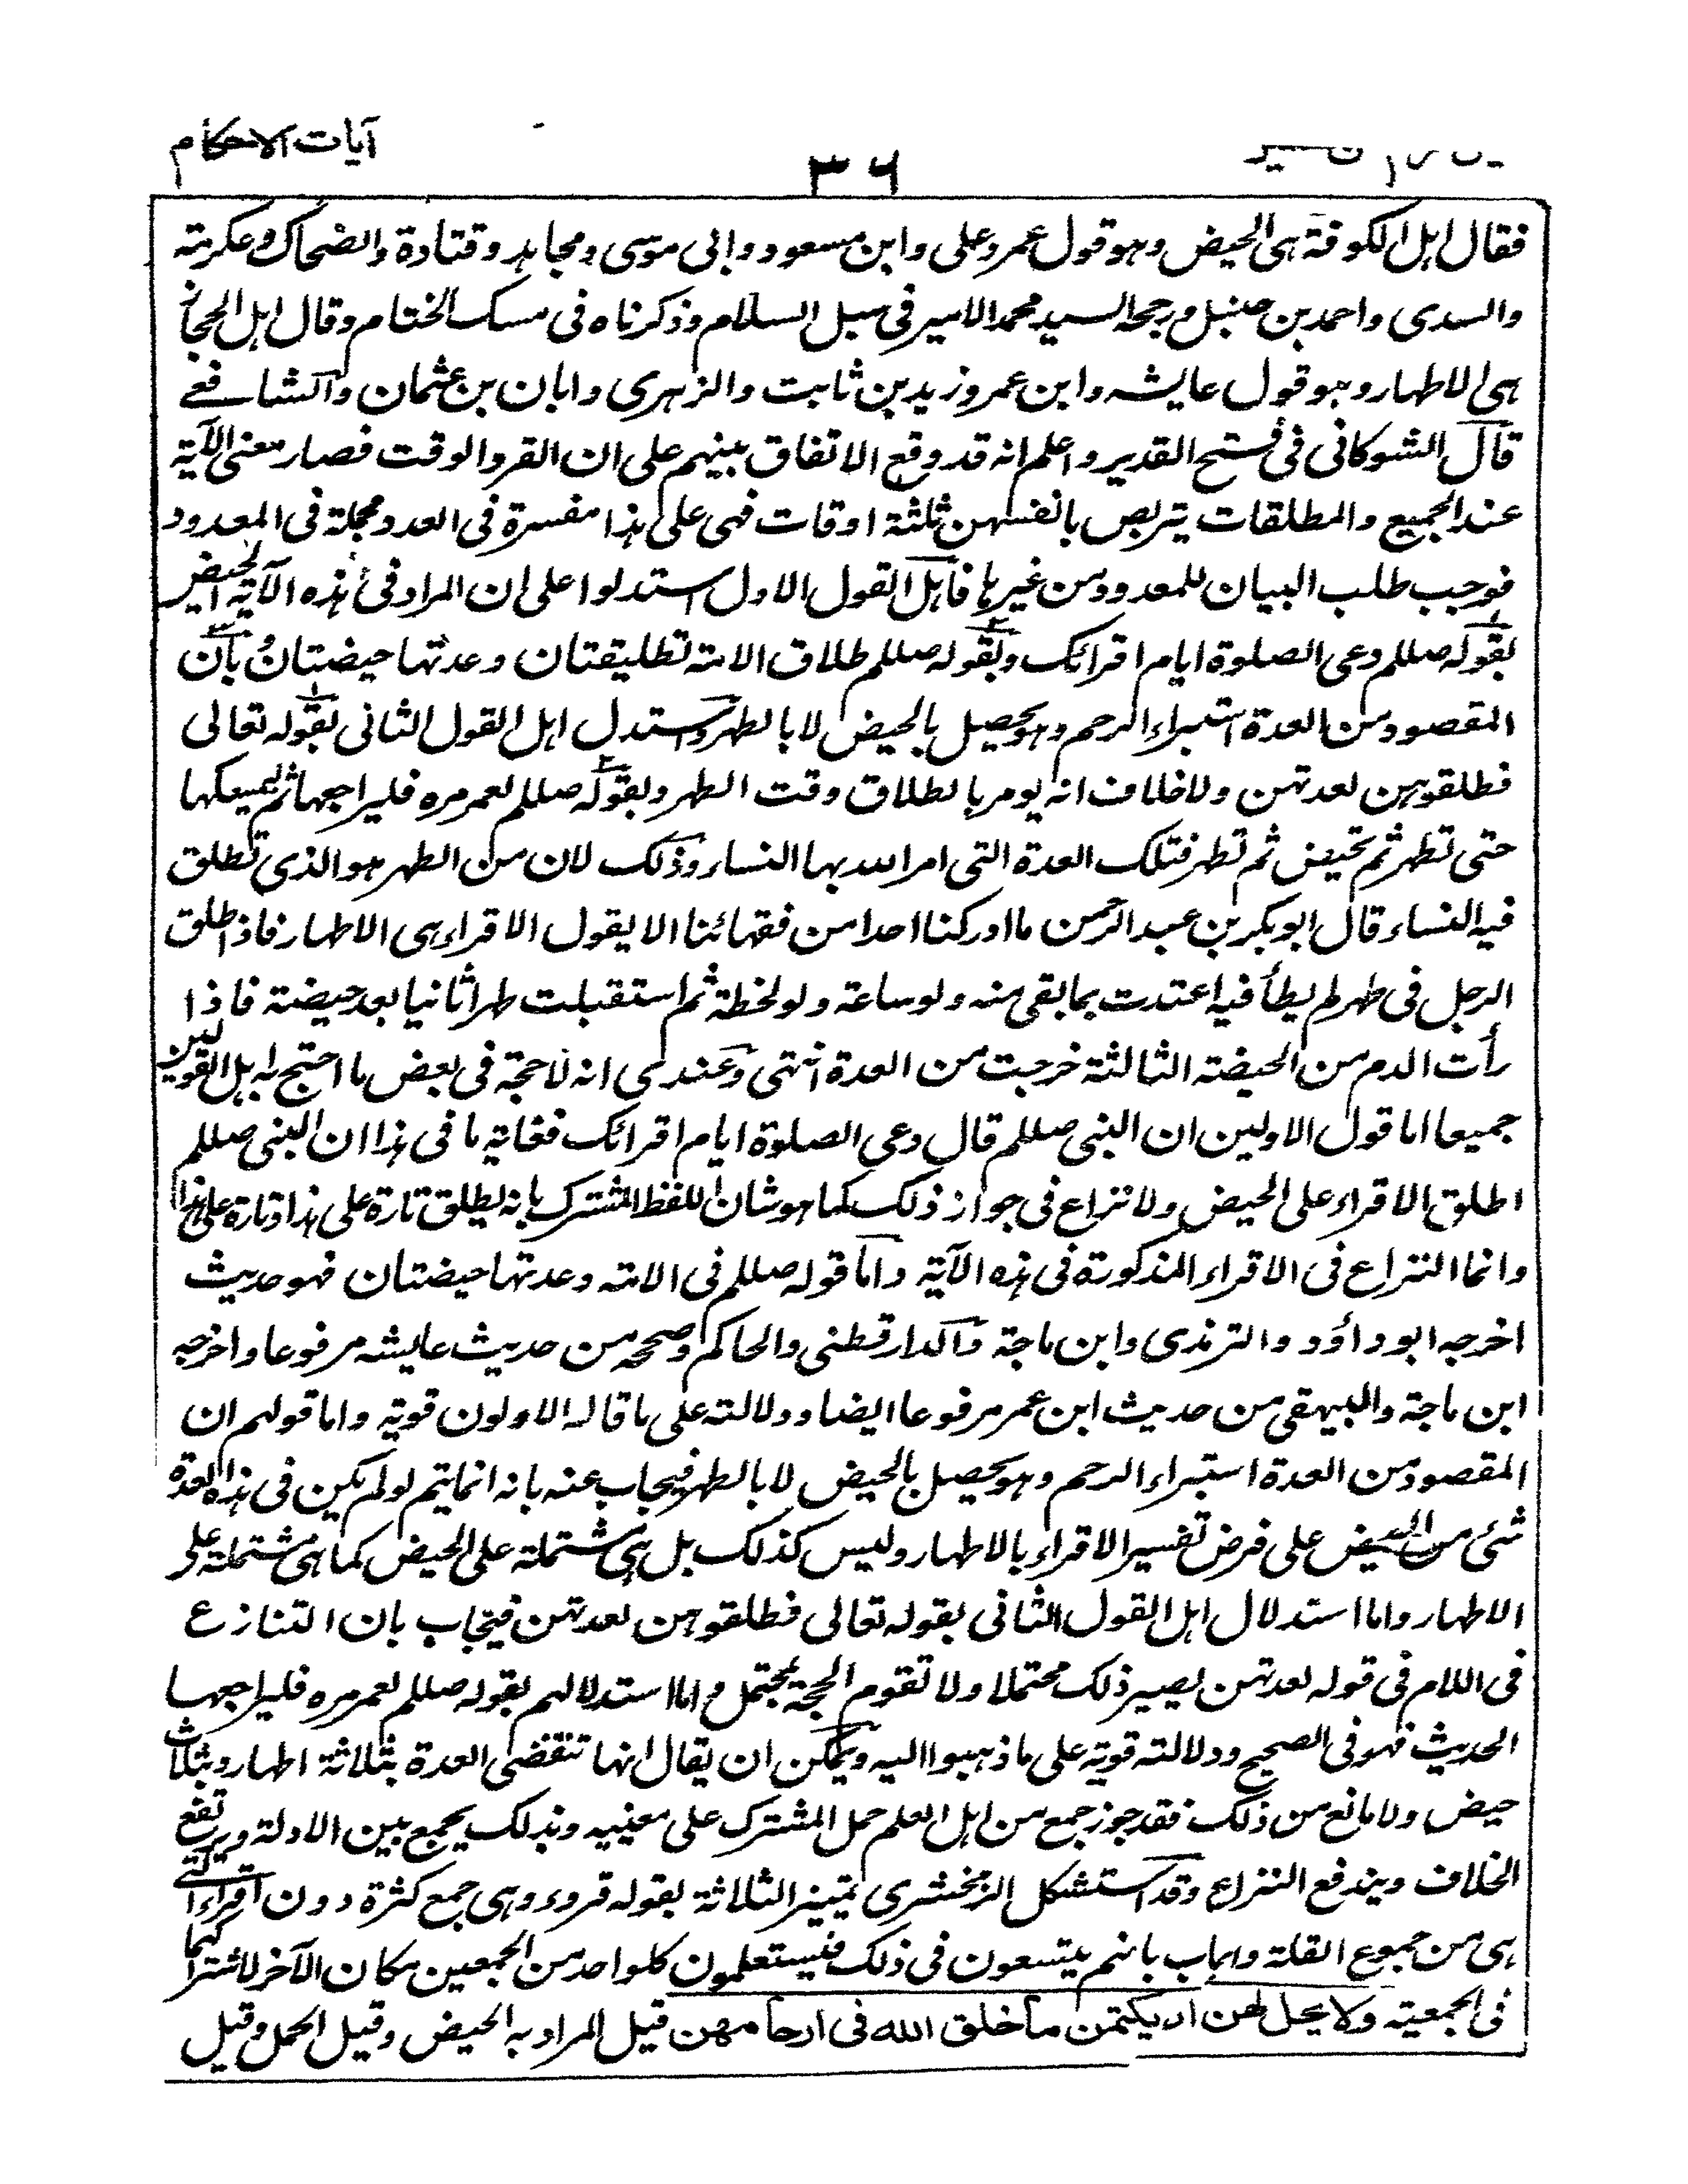 آیات الاحکام
۳۶
فقال اہل الکوفۃ ہی الحیض وہو قول عمر وعلی وابن مسعود وابی موسی ومجاہد وقتادۃ والضحاک وعکرمتہ
والسدی واحمد بن حنبل ورجحہ السید محمد الامیر فی سبل السلام وذکرناہ فی مسک الختام وقال اہل الحجاز
ہی الاطہار وہو قول عایشہ وابن عمر وزید بن ثابت والزہری وابان بن عثمان والشافعے
قال الشوکانی فی فتح القدیر واعلم انہ قد وقع الاتفاق بینہم علی ان القرء الوقت فصار معنی الآیۃ
عند الجمیع والمطلقات یتربص بانفسہن ثلثۃ اوقات فہی علی ہذا مفسرۃ فی العدد مجملۃ فی المعدود
فوجب طلب البیان للمعدود من غیرہا فاہل القول الاول استدلوا علی ان المراد فی ہذہ الآیۃ الحیض
بقولہ صللم دعی الصلوۃ ایام اقرائک وبقولہ صللم طلاق الامتہ تطلیقتان وعدتہا حیضتان وبان
المقصود من العدۃ استبراء الرحم وہو یحصل بالحیض لا بالطہر واستدل اہل القول الثانی بقولہ تعالی
فطلقوہن لعدتہن ولا خلاف انہ یومر بالطلاق وقت الطہر وبقولہ صللم لعمر مرہ فلیراجعہا ثم لیمسکہا
حتی تطہر ثم تحیض ثم تطہر فتلک العدۃ التی امر اللہ بہا النساء وذلک لان من الطہر ہو الذی تطلق
فیہ النساء قال ابو بکر بن عبد الرحمن ما ادرکنا احدا من فقہائنا الا یقول الاقراء ہی الاطہار فاذا طلق
الرجل فی طہر لم یطأ فیہ اعتدت بما بقی منہ ولو ساعۃ ولو لحظۃ ثم استقبلت طہرا ثانیا بعد حیضتہ فاذا
رأت الدم من الحیضتہ الثالثۃ خرجت من العدۃ انتہی وعندی انہ لا حجۃ فی بعض ما احتج بہ اہل القولین
جمیعا اما قول الاولین ان النبی صللم قال دعی الصلوۃ ایام اقرائک فغایۃ ما فی ہذا ان النبی صللم
اطلق الاقراء علی الحیض ولا نزاع فی جواز ذلک کما ہو شان اللفظ المشترک بانہ یطلق تارۃ علی ہذا وتارۃ علی ہذا
وانما النزاع فی الاقراء المذکورۃ فی ہذہ الآیۃ واما قولہ صللم فی الامتہ وعدتہا حیضتان فہو حدیث
اخرجہ ابو داؤد والترمذی وابن ماجۃ والدارقطنی والحاکم وصححہ من حدیث عایشہ مرفوعا واخرجہ
ابن ماجۃ والبیہقی من حدیث ابن عمر مرفوعا ایضا ودلالتہ علی ما قالہ الاولون قویۃ واما قولہم ان
المقصود من العدۃ استبراء الرحم وہو یحصل بالحیض لا بالطہر فیجاب عنہ بانہ انما یتم لو لم یکن فی ہذہ العدۃ
شئی من الحیض علی فرض تفسیر الاقراء بالاطہار ولیس کذلک بل ہی مشتملۃ علی الحیض کما ہی مشتملۃ علی
الاطہار واما استدلال اہل القول الثانی بقولہ تعالی فطلقوہن لعدتہن فیجاب بان التنازع
فی اللام فی قولہ لعدتہن یصیر ذلک محتملا ولا تقوم الحجۃ بمحتمل واما استدلالہم بقولہ صللم لعمر مرہ فلیراجعہا
الحدیث فہو فی الصحیح ودلالتہ قویۃ علی ما ذہبوا الیہ ویمکن ان یقال انہا تنقضی العدۃ بثلاثۃ اطہار وبثلاث
حیض ولا مانع من ذلک فقد جوز جمع من اہل العلم حمل المشترک علی معنییہ وبذلک یجمع بین الادلۃ ویرتفع
الخلاف ویندفع النزاع وقد استشکل الزمخشری تمییز الثلاثۃ بقولہ قروء وہی جمع کثرۃ دون اقراء التی
ہی من جموع القلۃ واجاب بانہم یتسعون فی ذلک فیستعلمون کلواحد من الجمعین مکان الآخر لاشتراکہما
فی الجمعیتہ ولا یحل لھن ان یکتمن ما خلق اللہ فی ارحامھن قیل المراد بہ الحیض وقیل الحمل وقیل